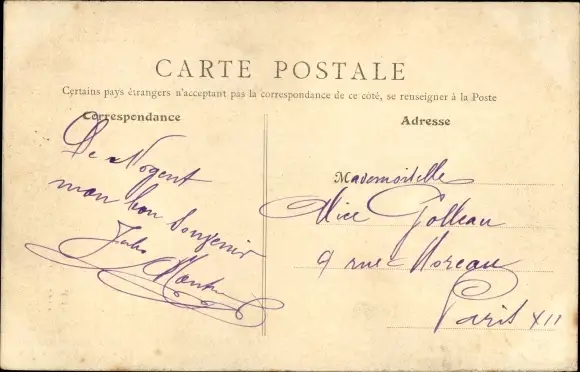 CARTE POSTALE
Certains pays étrangers n'acceptant pas la correspondance de ce côté, se renseigner à la Poste
Correspondance
Adresse
De Nogent
mon bon Souvenir
Jules
Mademoiselle
Alice
9 rue Moreau
Paris XII